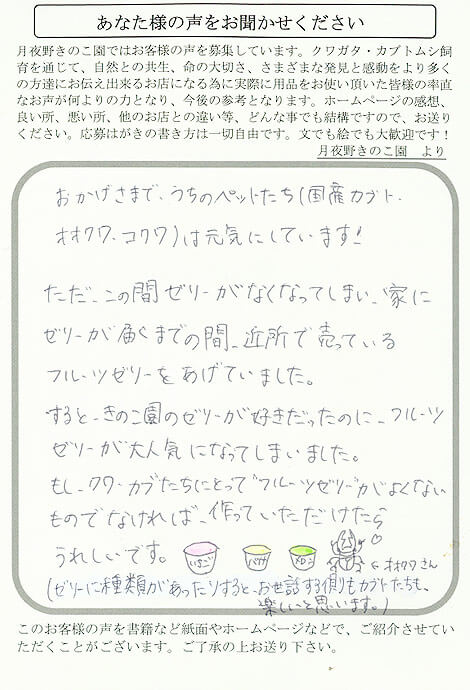 あなた様の声をお聞かせください
月夜野きのこ園ではお客様の声を募集しています。クワガタ・カブトムシ飼
育を通じて、自然との共生、命の大切さ、さまざまな発見と感動をより多く
の方達にお伝え出来るお店になる為に実際に用品をお使い頂いた皆様の率直
なお声が何よりの力となり、今後の参考となります。ホームページの感想、
良い所、悪い所、他のお店との違い等、どんな事でも結構ですので、お送り
ください。応募はがきの書き方は一切自由です。文でも絵でも大歓迎です！
月夜野きのこ園　より
おかげさまで、うちのペットたち(国産カブト、
オオクワ、コクワ)は元気にしています!
ただ、この間ゼリーがなくなってしまい、家に
ゼリーが届くまでの間、近所で売っている
フルーツゼリーをあげていました。
すると、きのこ園のゼリーが好きだったのに、フルーツ
ゼリーが大人気になってしまいました。
もし、クワ・カブたちにとって"フルーツゼリー"がよくない
ものでなければ、作っていただけたら
うれしいです。 いちご バナナ メロン ← オオクワさん
(ゼリーに種類があったりすると、お世話する側もカブトたちも、
楽しいと思います。)
このお客様の声を書籍など紙面やホームページなどで、ご紹介させてい
ただくことがございます。ご了承の上お送り下さい。